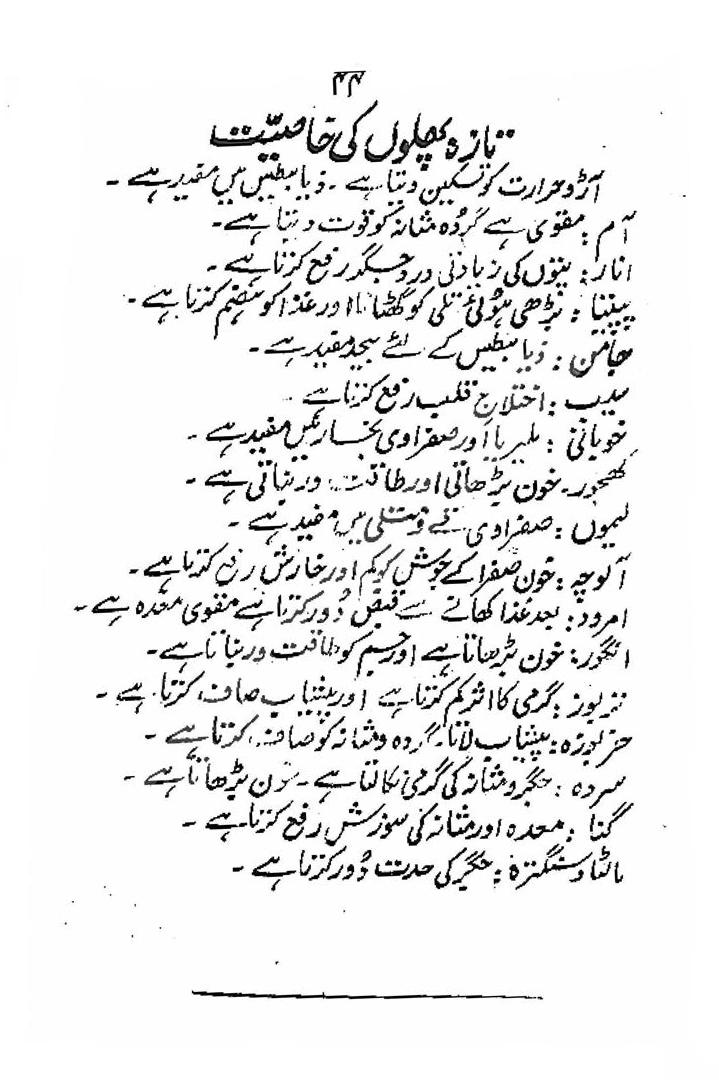 ۴۴
تازہ پھلوں کی خاصیّت
آڑو حرارت کو تسکین دیتا ہے ۔ ذیابطیس میں مفید ہے ۔
آم : مقوی ہے گردہ مثانہ کو قوت دیتا ہے ۔
انار : پتوں کی زیادتی درد جگر رفع کرتا ہے ۔
پپیتا : بڑھی ہوئی تلی کو گھٹاتا اور غذا کو ہضم کرتا ہے ۔
جامن : ذیابطیس کے لئے بیحد مفید ہے ۔
سیب : اختلاجِ قلب رفع کرتا ہے
خوبانی : ملیریا اور صفراوی بخار میں مفید ہے ۔
کھجور ۔ خون بڑھاتی اور طاقت ور بناتی ہے ۔
لیموں : صفراوی قے و متلی میں مفید ہے ۔
آلوچہ : خون صفرا کے جوش کو کم اور خارش رفع کرتا ہے ۔
امرود : بعد غذا کھانے سے قبض دُور کرتا ہے مقوی معدہ ہے ۔
انگور : خون بڑھاتا ہے اور جسم کو طاقت ور بناتا ہے ۔
تربوز : گرمی کا اثر کم کرتا ہے اور پیشاب صاف کرتا ہے ۔
خربوزہ : پیشاب لاتا ۔ گردہ و مثانہ کو صاف کرتا ہے ۔
سردہ : جگر و مثانہ کی گرمی نکالتا ہے ۔ خون بڑھاتا ہے ۔
گنا : معدہ اور مثانہ کی سوزش رفع کرتا ہے ۔
مالٹا و سنگترہ : جگر کی حدت دُور کرتا ہے ۔